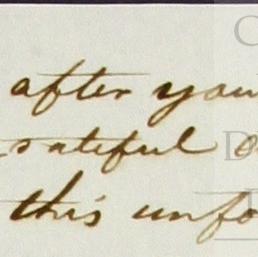 after you
grateful
this unfo